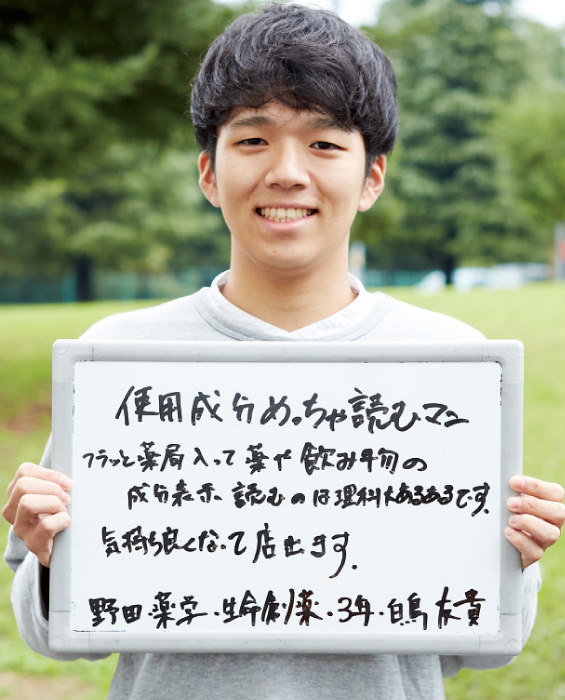 使用成分めっちゃ読むマン
フラッと薬局入って薬や飲み物の
成分表示 読むのは理科大あるあるです。
気持ち良くなって店出ます。
野田・薬学・生命創薬・3年・白鳥 友貴